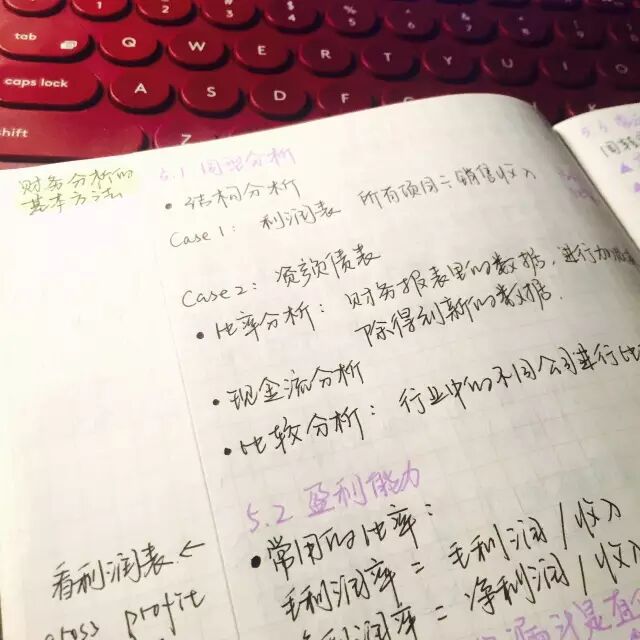 2 3 4 5 6 7
tab Q W E R T Y U
caps lock A S D F
shift Z
财务分析的
基本方法
5.1 同型分析
• 结构分析
Case 1: 利润表 所有项目÷销售收入
Case 2: 资产负债表
• 比率分析: 财务报表里的数据,进行加减
除得到新的数据.
• 现金流分析
• 比较分析: 行业中的不同公司进行比
5.2 盈利能力
• 常用的比率:
毛利润率 = 毛利润/收入
利润率 = 净利润/收入
看利润表 ←
gross profit
5.3
同型